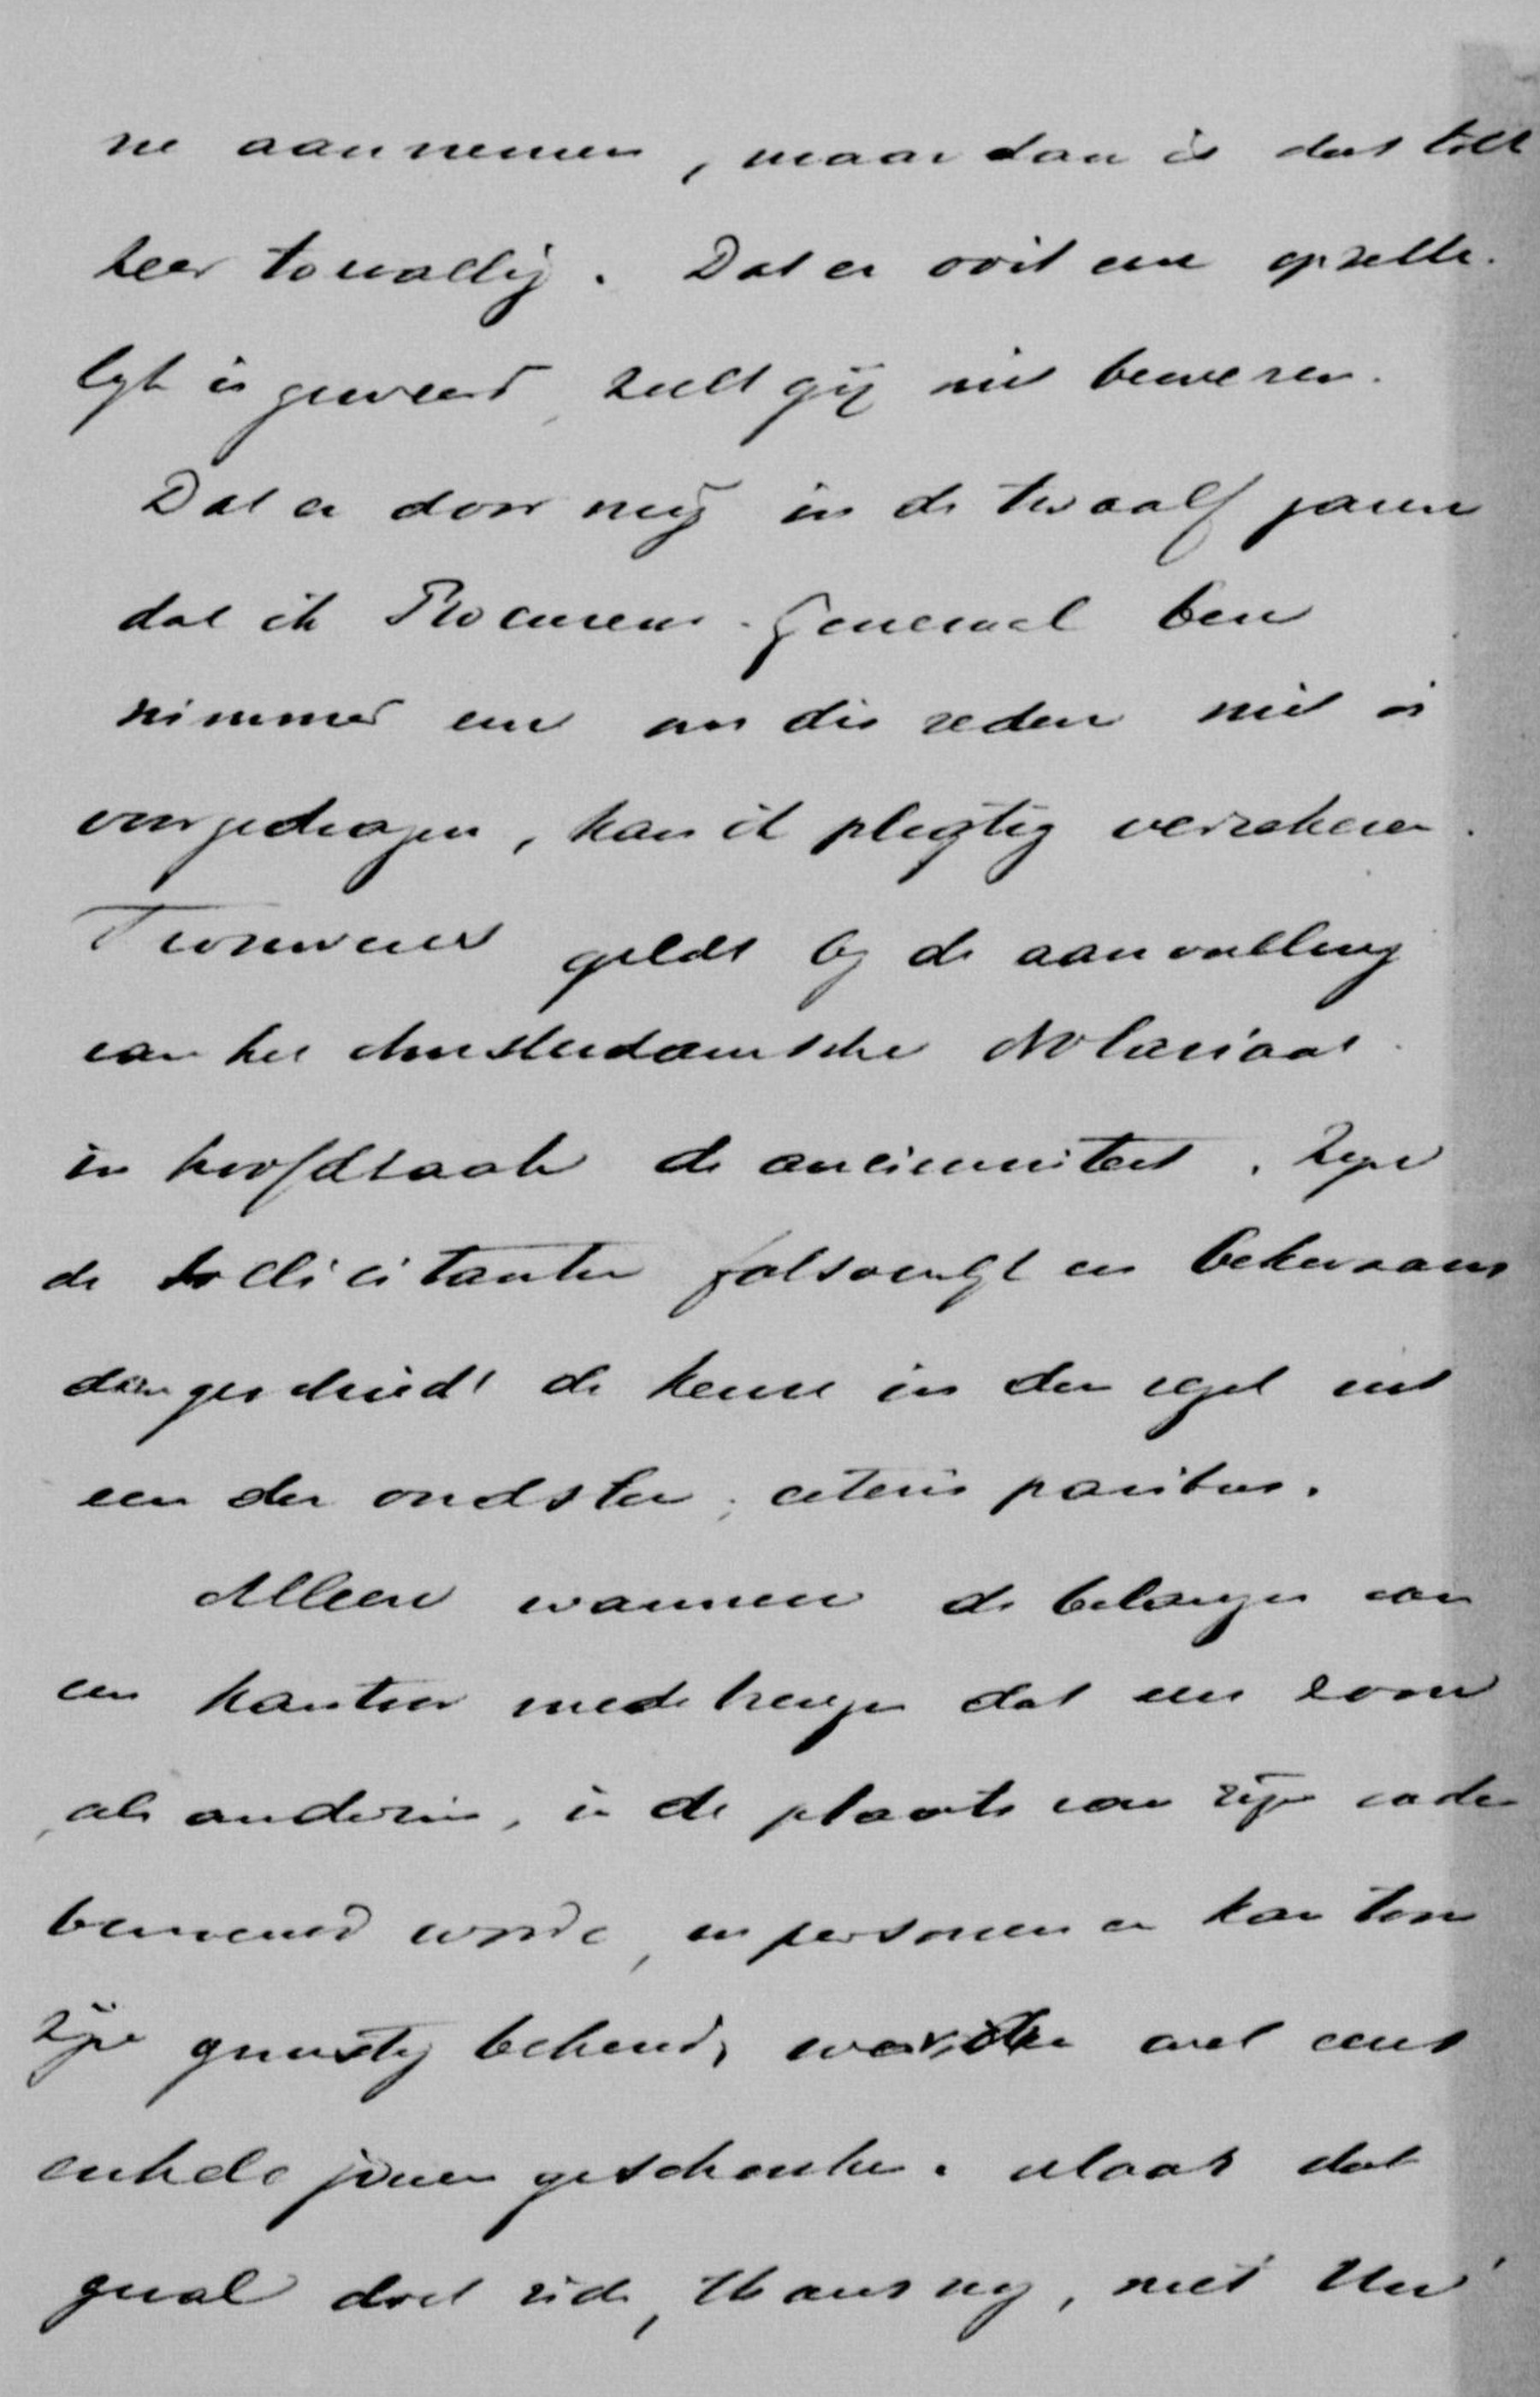 ne aannemen, maar dan is dat toch
zeer toevallig. Dat er ooit een opzette-
lyk is geweerd, zult gij niet beweren.
Dat er door mij in de twaalf jaren
dat ik Procureur-Generaal ben
nimmer een om die reden niet is
voorgedragen, kan ik plegtig verzekeren.
Trouwens geldt by de aanvulling
van het Amsterdamsche Notariaat
in hoofdzaak de anciënniteit. Zyn
de sollicitanten fatsoenlyk en bekwaam
dan geschiedt de keuze in den regel uit
een der oudsten, ceteris paribus.
Alleen wanneer de belangen van
een kantoor medebrengen dat een zoon
als anderzins, in de plaats van zijn vader
benoemd worde, en personen en kantoor
zijn gunstig bekend, worden wel eens
enkele jaren geschonken. Maar dat
geval doet zich, thans nog, niet